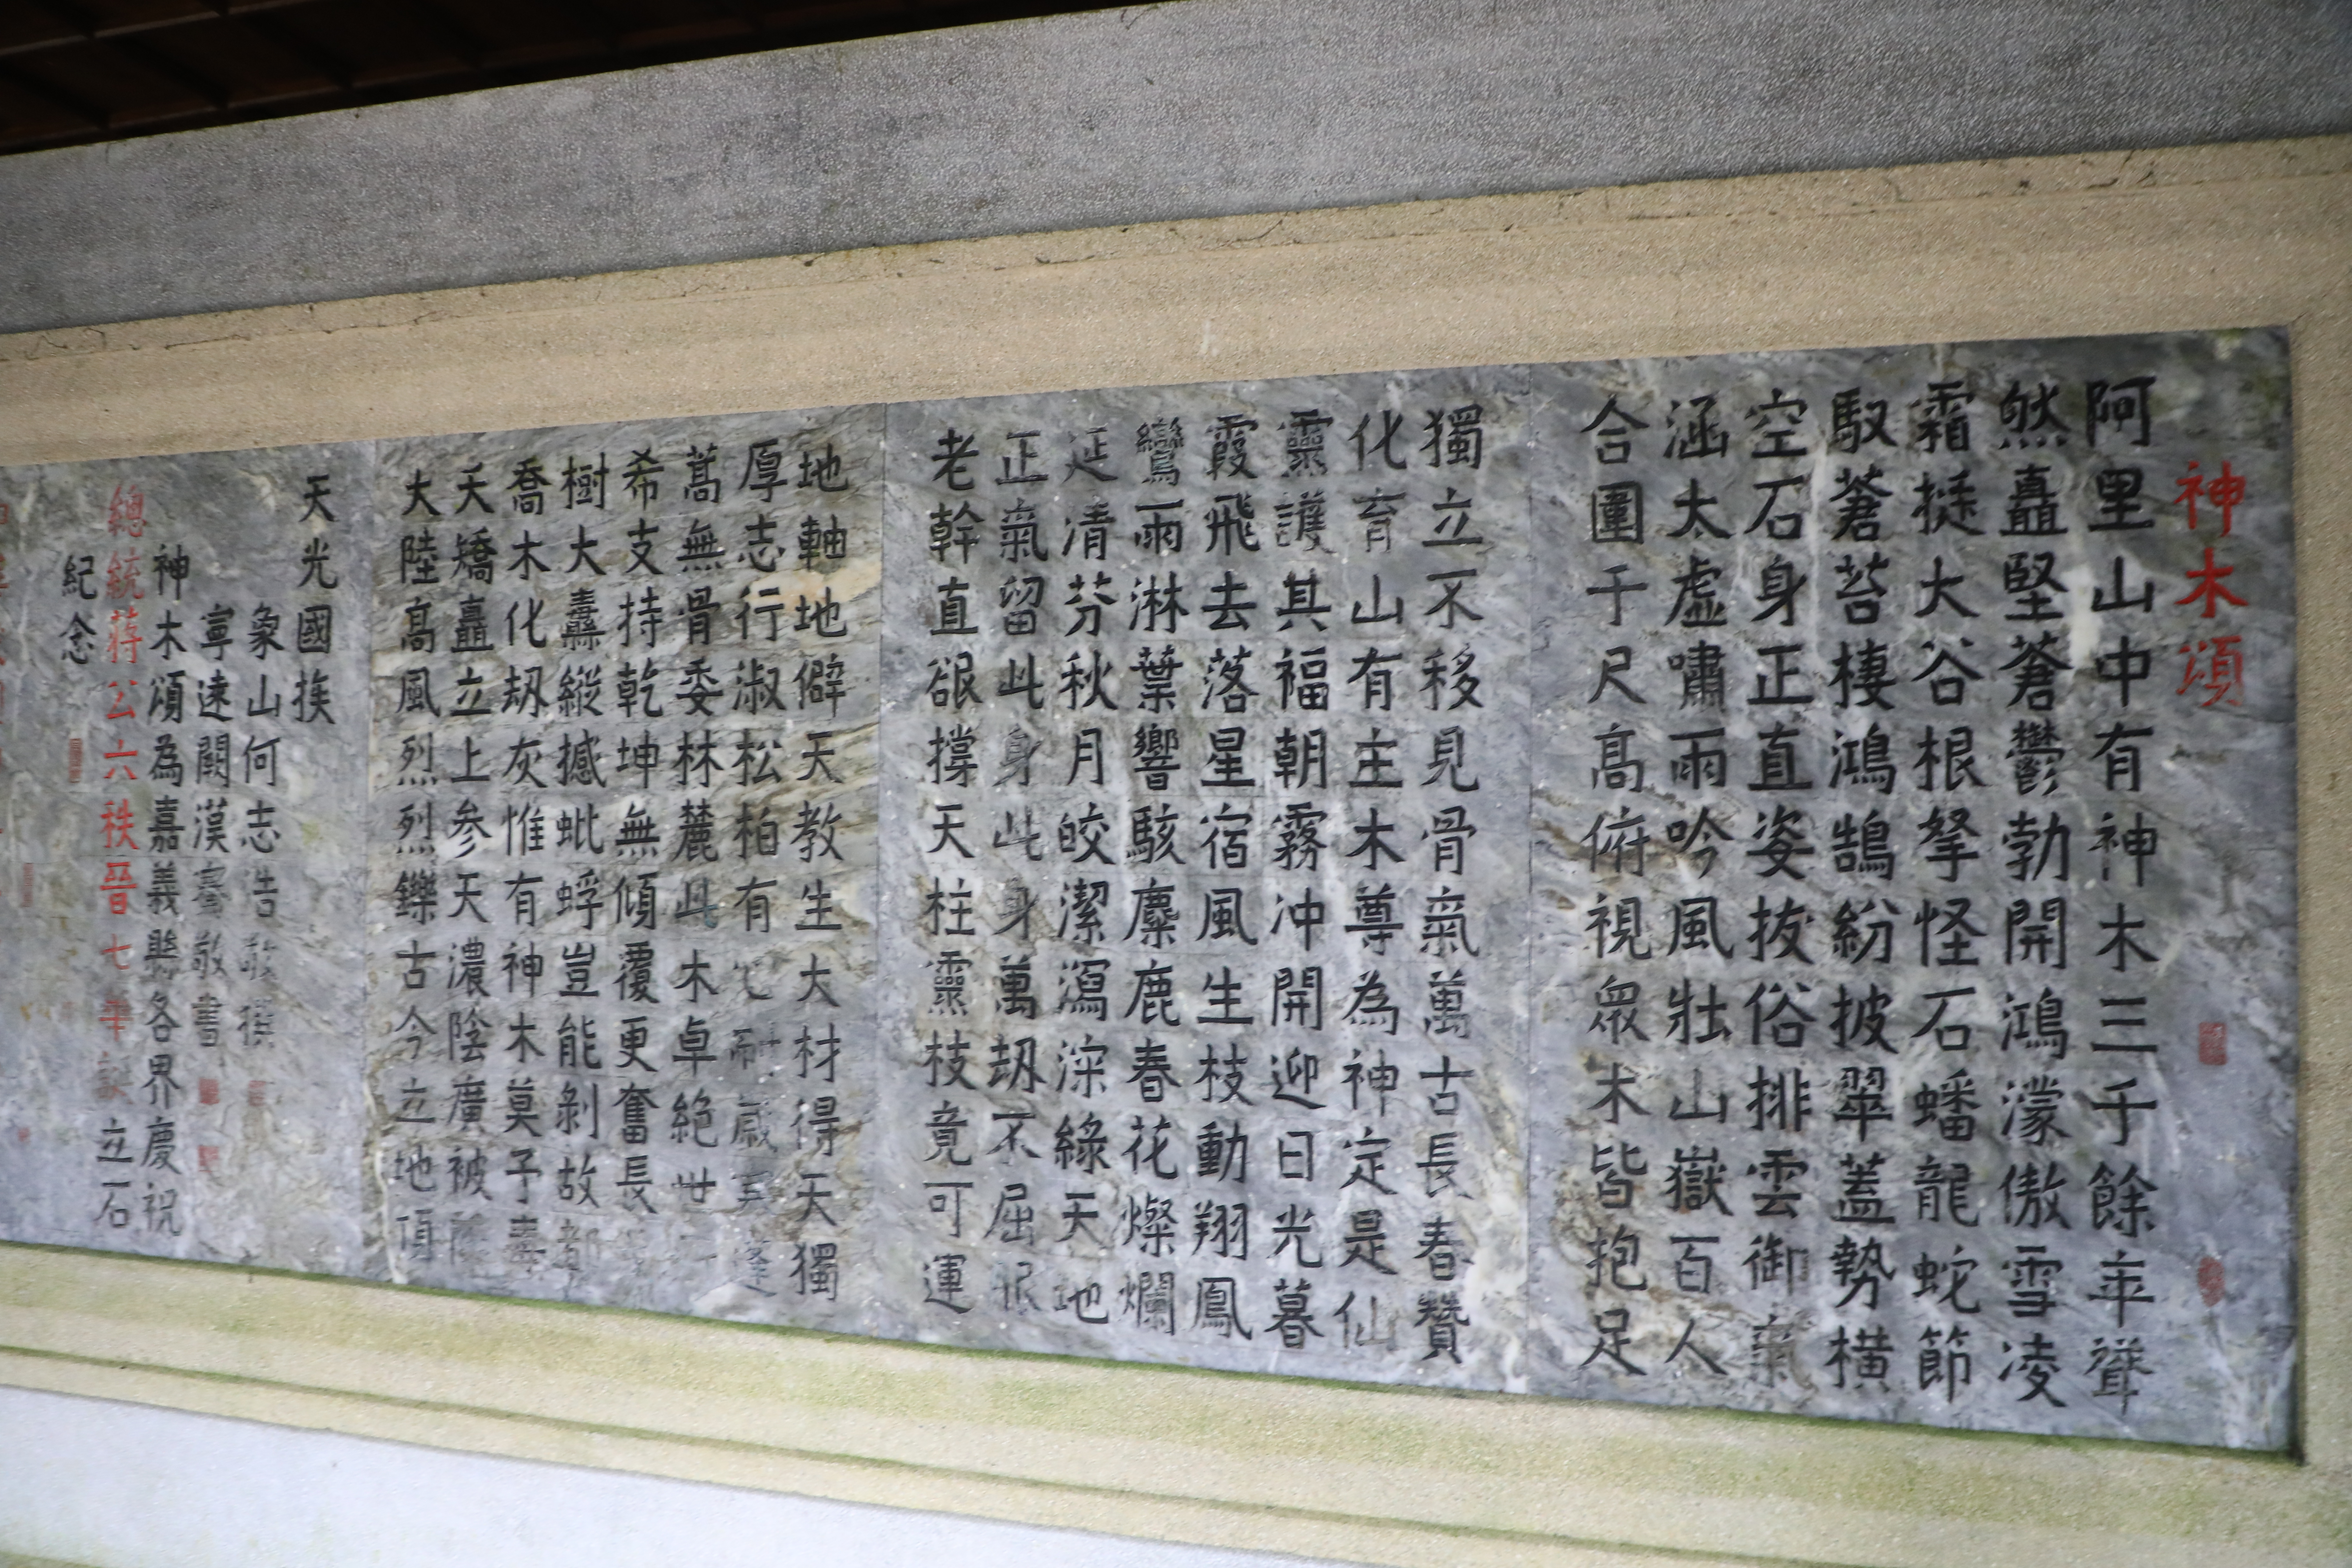 神木頌
阿里山中有神木三千餘年聳
然矗堅蒼鬱勃開鴻濛傲雪凌
霜挺大谷根拏怪石蟠龍蛇節
馭蒼苔棲鴻鵠紛披翠蓋勢橫
空石身正直姿拔俗排雲御氣
涵太虛嘯雨吟風壯山嶽百人
合圍千尺高俯視眾木皆抱足
獨立不移見骨氣萬古長春贊
化育山有主木尊為神定是仙
靈護其福朝霧冲開迎日光暮
霞飛去落星宿風生枝動翔鳳
鸞雨淋葉響駭麋鹿春花燦爛
延清芬秋月皎潔瀉深綠天地
正氣留此身此身萬劫不屈
老幹直撐天柱靈枝竟可運
地軸地僻天教生大材得天獨
厚志行淑松柏有心耐歲寒蓬
蒿無骨委林麓此木卓絕世
希支持乾坤無傾覆更奮長
樹大纛縱撼蚍蜉豈能剝故
喬木化劫灰惟有神木莫予毒
夭矯矗立上參天濃陰廣被
大陸高風烈烈鑠古今立地頂
天光國族
象山何志浩敬撰
寧遠闕漢騫敬書
神木頌為嘉義縣各界慶祝
總統蔣公六秩晉七華誕立石
紀念